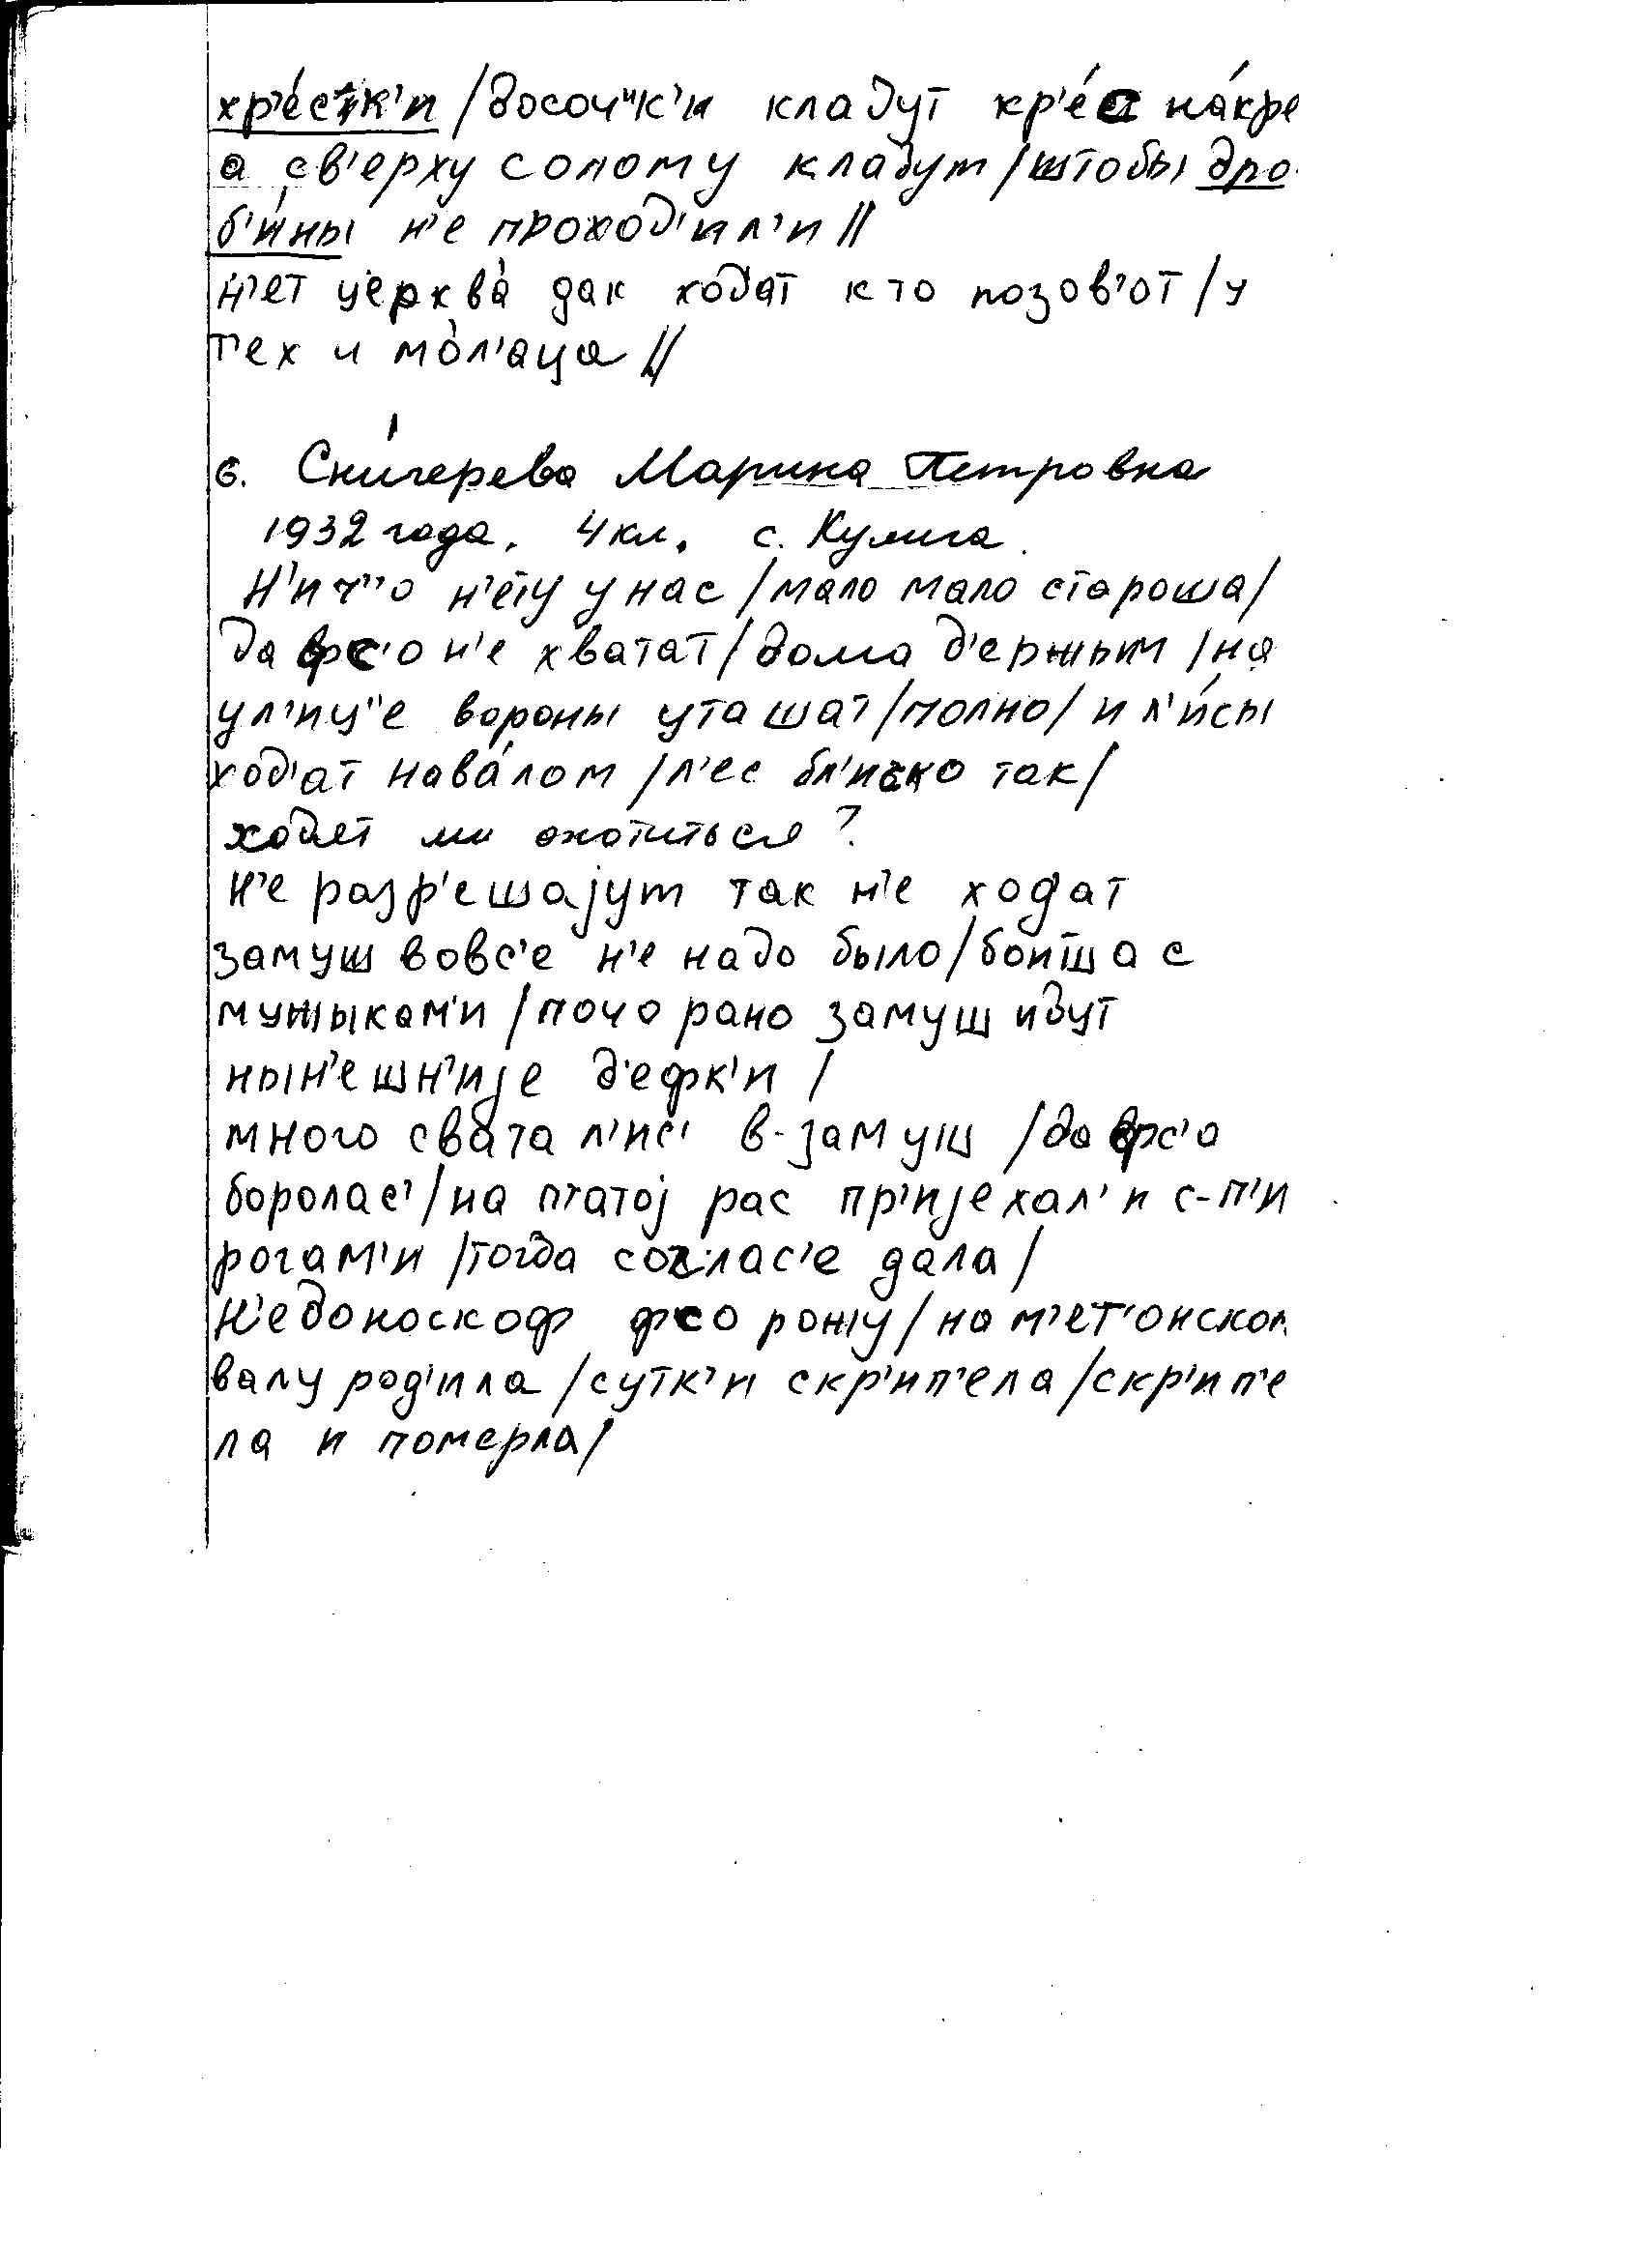 хр'е́стк'и / досоч"к'и кладут кр'е́с на́кре
а св'ерху солому кладут / штобы дро
б'и́ны н'е проход'ил'и //
н'ет церква̀ дак ходат кто позов'от / у
т'ех и мо̀л'аца //
6. Сни́герева Марина Петровна
1932 года. 4 кл. с. Кулига.
Н'ич"о н'ету у нас / мало мало староша /
да фс'о н'е хватат / дома д'ержым / на
ул'иц"е вороны уташат / полно / и л'и́сы
ход'ат нава́лом / л'ес бл'иско так /
ходят ли охотиться?
н'е разр'ешаjут так н'е ходат
замуш вовс'е н'е надо было / боитша с
мужыкам'и / почо рано замуш идут
нын'ешн'иje д'ефк'и /
много свата л'ис' в-замуш / да фс'о
боролас' / на птатоj рас пр'иjехал'и с-п'и
рогам'и / тогда соглас'е дала /
н'едоноскоф фсо рожу / на м'ет'онском
валу род'ила / сутк'и скр'ип'ела / скр'ип'е
ла и померла /